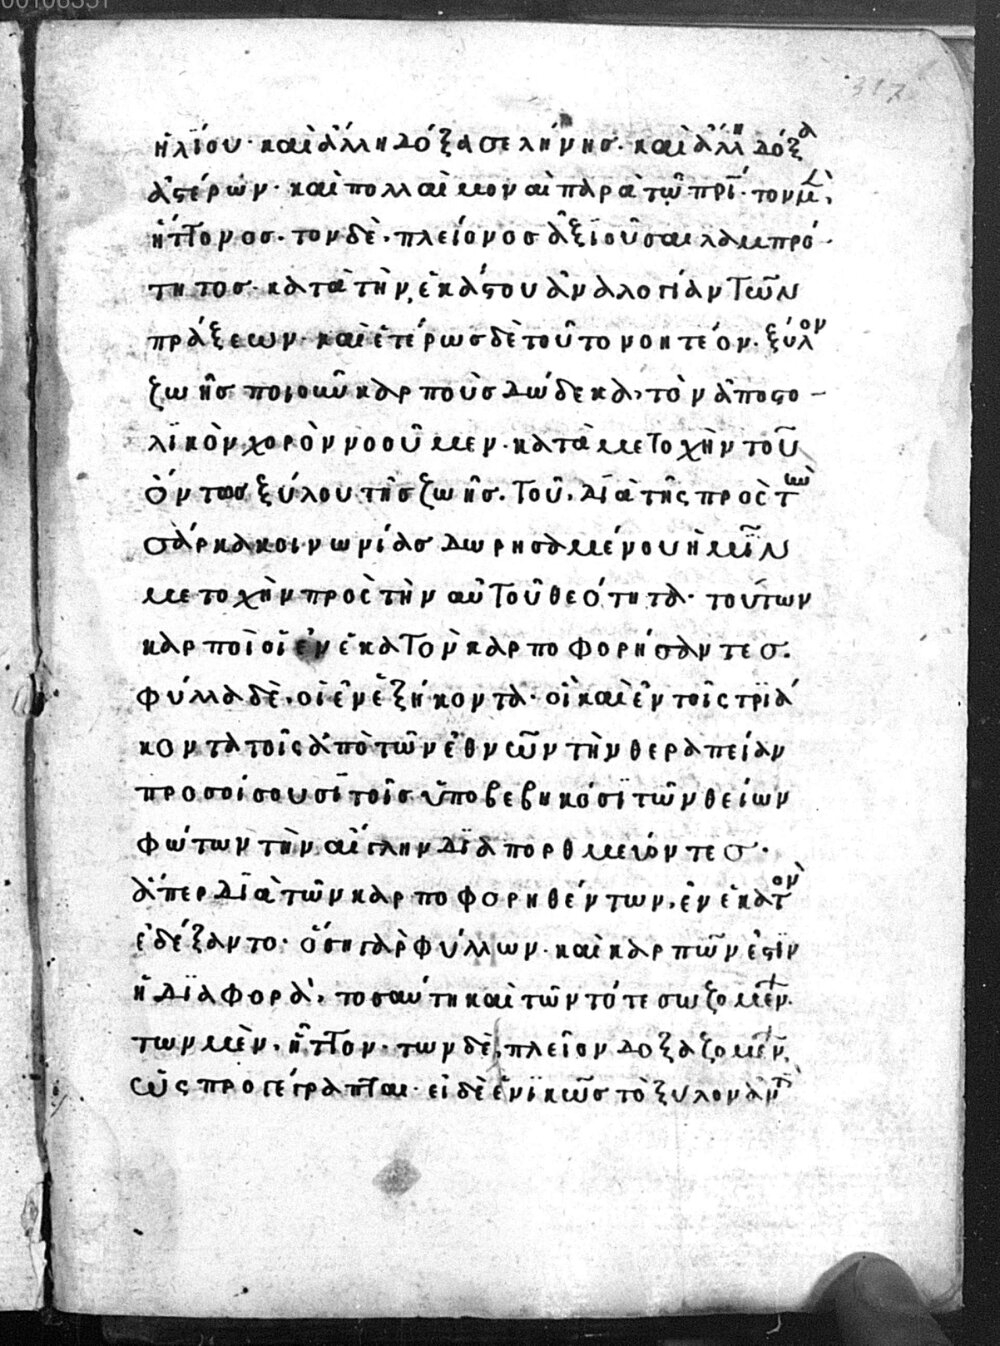 00108351
317
ἡλίου· καὶ ἄλλη δόξα σελήνης· καὶ ἄλλη δόξα
ἀστέρων· καὶ πολλαὶ μοναὶ παρὰ τῶ πρι· τον μὲν,
ἥττονος· τον δὲ, πλείονος ἀξιοῦσαι λαμπρό-
τητος· κατὰ τὴν ἑκάστου ἀναλογίαν τῶν
πράξεων· καὶ ἑτέρως δὲ τοῦτο νοητέον· ξύλον
ζωῆς ποιοῦν καρποὺς δώδεκα, τὸν ἀποστο-
λικὸν χορὸν νοοῦμεν· κατὰ μετοχὴν τοῦ
ὄντως ξύλου τῆς ζωῆς. τοῦ, διὰ τῆς πρὸς τὴν
σάρκα κοινωνίας δωρησαμένου ἡμῖν
μετοχὴν πρὸς τὴν αὐτοῦ θεότητα· τούτων
καρποὶ οἱ ἐν ἑκατὸν καρποφορήσαντες.
φύλλα δὲ, οἱ ἐν ἑξήκοντα· οἳ καὶ ἐν τοῖς τριά
κοντα τοῖς ἀπὸ τῶν ἐθνῶν τὴν θεραπείαν
προσοίσουσι τοῖς ὑποβεβηκόσι τῶν θείων
φώτων τὴν αἴγλην διαπορθμεύοντες·
ἅπερ διὰ τῶν καρποφορηθέντων, ἐν ἑκατὸν
ἐδέξαντο· ὅση γὰρ φύλλων· καὶ καρπῶν ἐστιν
ἡ διαφορὰ, τοσαύτη καὶ τῶν τότε σωζομένων·
των μὲν, ἧττον· των δὲ, πλεῖον δοξαζομένων,
ὡς προγέγραπται· εἰ δὲ ἑνικῶς τὸ ξυλον ἀντὶ